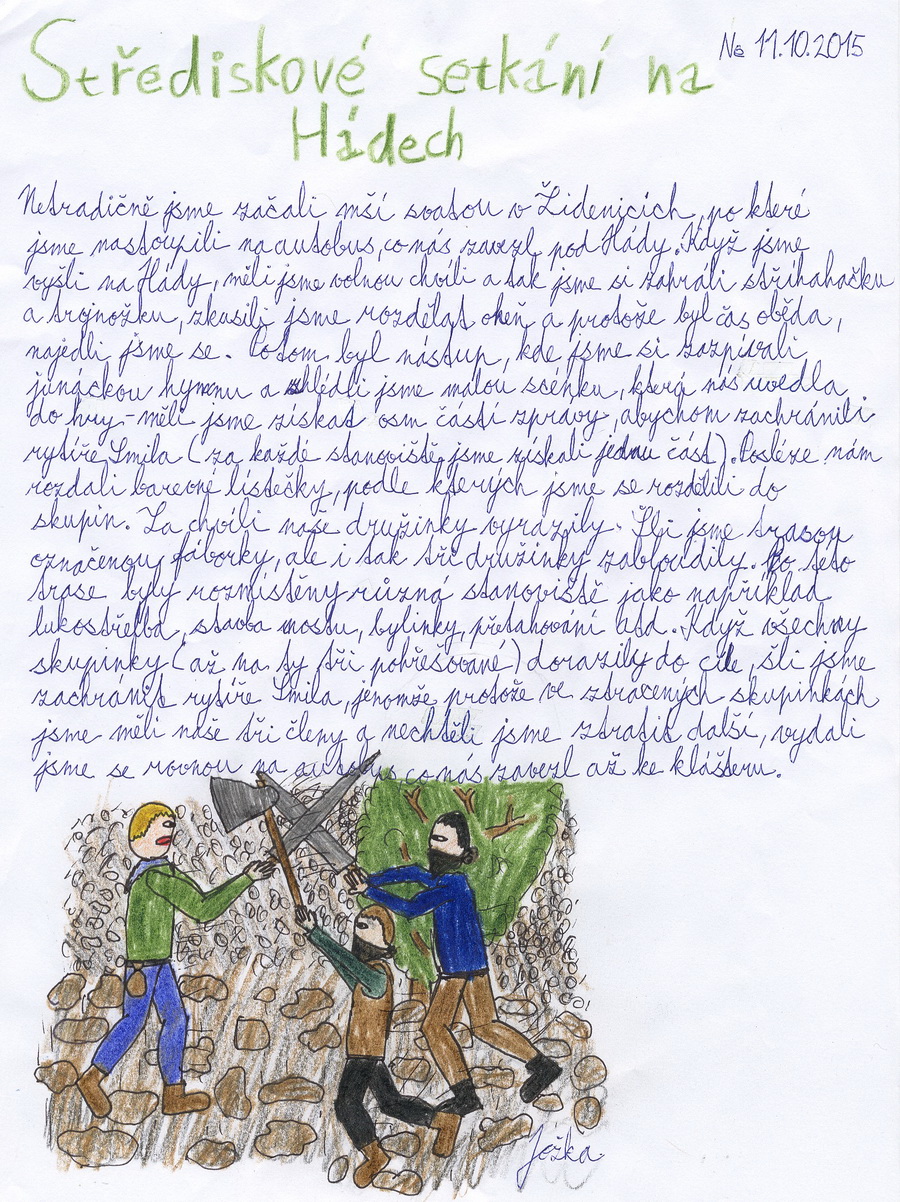 Ne 11.10.2015
Střediskové setkání na
Hádech
Netradičně jsme začali mší svatou v Židenicích, po které
jsme nastoupili na autobus, co nás zavezl pod Hády. Když jsme
vyšli na Hády, měli jsme volnou chvíli a tak jsme si zahráli stříhahačku
a trojnožku, zkusili jsme rozdělat oheň a protože byl čas oběda,
najedli jsme se. Potom byl nástup, kde jsme si zazpívali
junáckou hymnu a shlédli jsme malou scénku, která nás uvedla
do hry - měli jsme získat osm částí zprávy, abychom zachránili
rytíře Smila (za každé stanoviště jsme získali jednu část). Posléze nám
rozdali barevné lístečky, podle kterých jsme se rozdělili do
skupin. Za chvíli naše družinky vyrazily. Šli jsme trasou
označenou fáborky, ale i tak tři družinky zabloudily. Po této
trase byly rozmístěny různá stanoviště jako například
lukostřelba, stavba mostu, bylinky, přetahování atd. Když všechny
skupinky (až na ty tři pohřešované) dorazily do cíle, šli jsme
zachránit rytíře Smila, jenomže protože ve ztracených skupinkách
jsme měli naše tři členy a nechtěli jsme ztratit další, vydali
jsme se rovnou na autobus co nás zavezl až ke klášteru.
Ježka